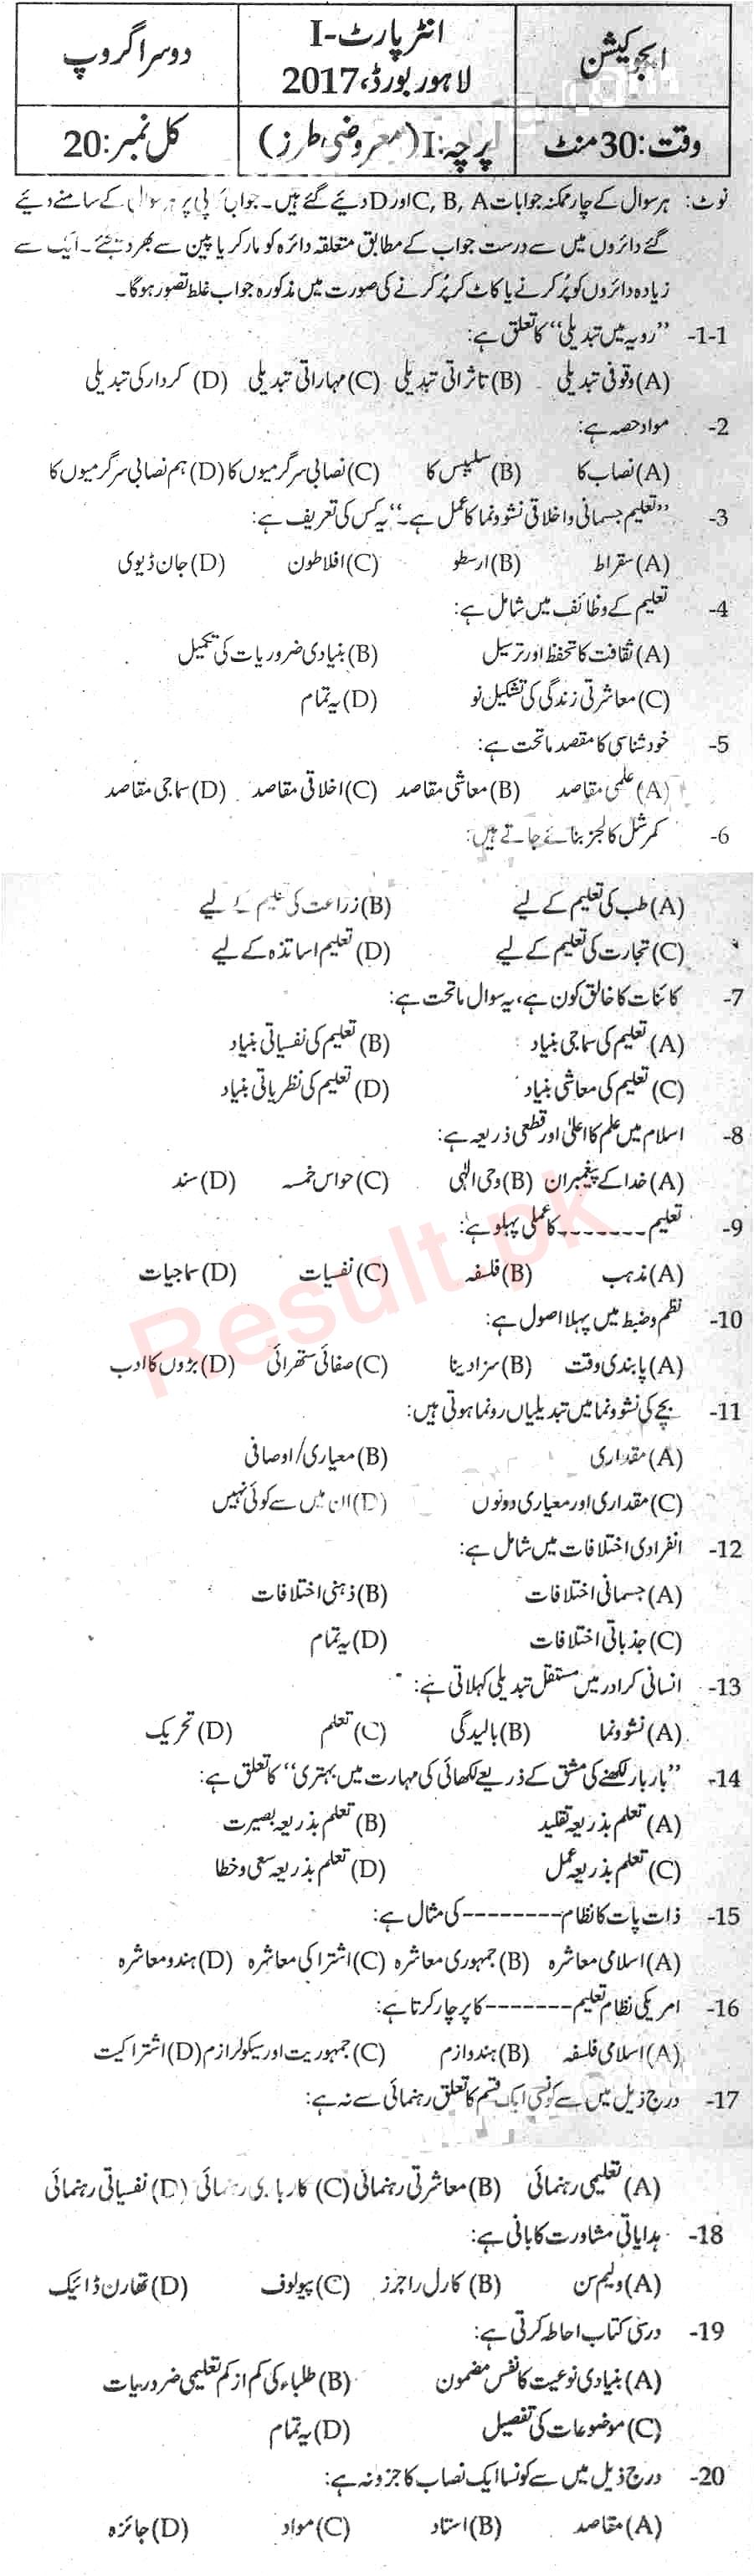 ایجوکیشن
انٹر پارٹ-I
لاہور بورڈ، 2017
دوسرا گروپ
وقت: 30 منٹ
پرچہ: I (معروضی طرز)
کل نمبر: 20
نوٹ: ہر سوال کے چار ممکنہ جوابات C, B, A اور D دیئے گئے ہیں۔ جوابی کاپی پر ہر سوال کے سامنے دیئے
گئے دائروں میں سے درست جواب کے مطابق متعلقہ دائرہ کو مارکر یا پین سے بھر دیجئے۔ ایک سے
زیادہ دائروں کو پُر کرنے یا کاٹ کر پُر کرنے کی صورت میں مذکورہ جواب غلط تصور ہوگا۔
1-1- ’’رویہ میں تبدیلی‘‘ کا تعلق ہے:
(A) وقوفی تبدیلی (B) تاثراتی تبدیلی (C) مہاراتی تبدیلی (D) کردار کی تبدیلی
2- مواد حصہ ہے:
(A) نصاب کا (B) سلیبس کا (C) نصابی سرگرمیوں کا (D) ہم نصابی سرگرمیوں کا
3- ’’تعلیم جسمانی و اخلاقی نشوونما کا عمل ہے۔‘‘ یہ کس کی تعریف ہے:
(A) سقراط (B) ارسطو (C) افلاطون (D) جان ڈیوی
4- تعلیم کے وظائف میں شامل ہے:
(A) ثقافت کا تحفظ اور ترسیل (B) بنیادی ضروریات کی تکمیل
(C) معاشرتی زندگی کی تشکیل نو (D) یہ تمام
5- خود شناسی کا مقصد ماتحت ہے:
(A) علمی مقاصد (B) معاشی مقاصد (C) اخلاقی مقاصد (D) سماجی مقاصد
6- کمرشل کالجز بنائے جاتے ہیں:
(A) طب کی تعلیم کے لیے (B) زراعت کی تعلیم کے لیے
(C) تجارت کی تعلیم کے لیے (D) تعلیم اساتذہ کے لیے
7- کائنات کا خالق کون ہے، یہ سوال ماتحت ہے:
(A) تعلیم کی سماجی بنیاد (B) تعلیم کی نفسیاتی بنیاد
(C) تعلیم کی معاشی بنیاد (D) تعلیم کی نظریاتی بنیاد
8- اسلام میں علم کا اعلیٰ اور قطعی ذریعہ ہے:
(A) خدا کے پیغمبران (B) وحی الٰہی (C) حواس خمسہ (D) سند
9- تعلیم ------- کا عملی پہلو ہے:
(A) مذہب (B) فلسفہ (C) نفسیات (D) سماجیات
10- نظم و ضبط میں پہلا اصول ہے:
(A) پابندی وقت (B) سزا دینا (C) صفائی ستھرائی (D) بڑوں کا ادب
11- بچے کی نشوونما میں تبدیلیاں رونما ہوتی ہیں:
(A) مقداری (B) معیاری/اوصافی
(C) مقداری اور معیاری دونوں (D) ان میں سے کوئی نہیں
12- انفرادی اختلافات میں شامل ہے:
(A) جسمانی اختلافات (B) ذہنی اختلافات
(C) جذباتی اختلافات (D) یہ تمام
13- انسانی کرادر میں مستقل تبدیلی کہلاتی ہے:
(A) نشوونما (B) بالیدگی (C) تعلم (D) تحریک
14- ’’بار بار لکھنے کی مشق کے ذریعے لکھائی کی مہارت میں بہتری‘‘ کا تعلق ہے:
(A) تعلم بذریعہ تقلید (B) تعلم بذریعہ بصیرت
(C) تعلم بذریعہ عمل (D) تعلم بذریعہ سعی و خطا
15- ذات پات کا نظام -------- کی مثال ہے:
(A) اسلامی معاشرہ (B) جمہوری معاشرہ (C) اشتراکی معاشرہ (D) ہندو معاشرہ
16- امریکی نظام تعلیم ------- کا پرچار کرتا ہے:
(A) اسلامی فلسفہ (B) ہندوازم (C) جمہوریت اور سیکولرازم (D) اشتراکیت
17- درج ذیل میں سے کونسی ایک قسم کا تعلق رہنمائی سے نہ ہے:
(A) تعلیمی رہنمائی (B) معاشرتی رہنمائی (C) کاروباری رہنمائی (D) نفسیاتی رہنمائی
18- ہدایاتی مشاورت کا بانی ہے:
(A) ولیم سن (B) کارل راجرز (C) پیولوف (D) تھارن ڈائیک
19- درسی کتاب احاطہ کرتی ہے:
(A) بنیادی نوعیت کا نفس مضمون (B) طلباء کی کم از کم تعلیمی ضروریات
(C) موضوعات کی تفصیل (D) یہ تمام
20- درج ذیل میں سے کونسا ایک نصاب کا جزو نہ ہے:
(A) مقاصد (B) استاد (C) مواد (D) جائزہ
Result.pk